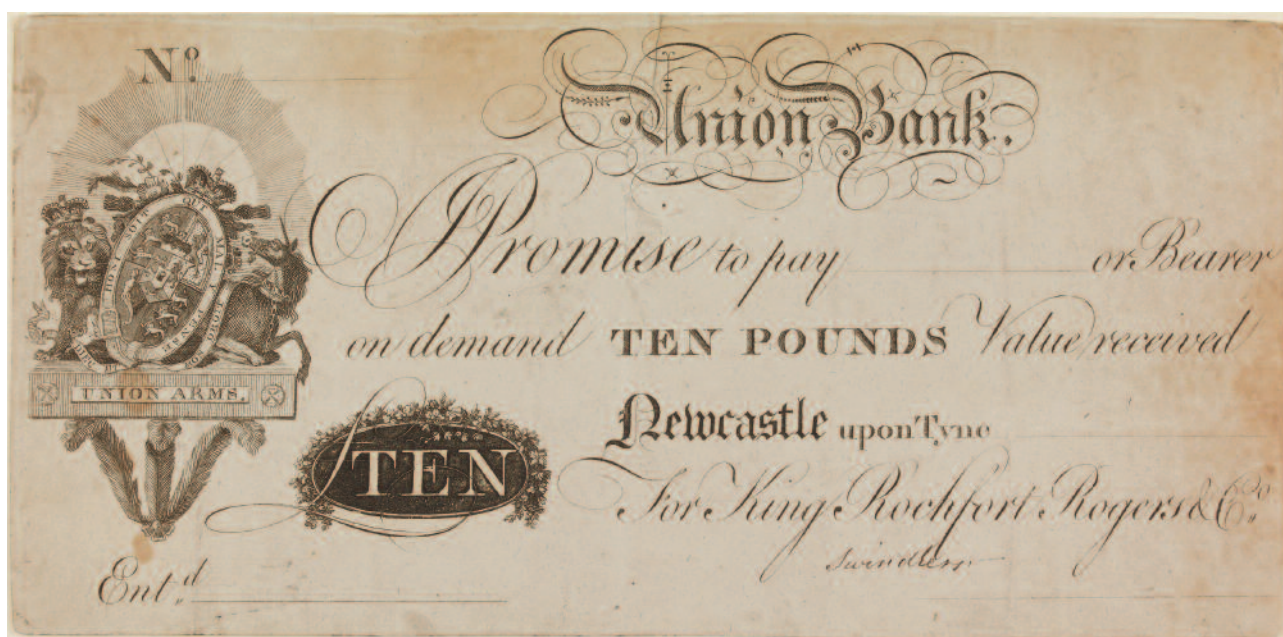 No.
Union Bank.
HONI SOIT QUI MAL Y PENSE
UNION ARMS.
I Promise to pay or Bearer
on demand TEN POUNDS Value received
Newcastle upon Tyne
£TEN
For King Rochfort Rogers & Co.
Swindlers
Ent.d